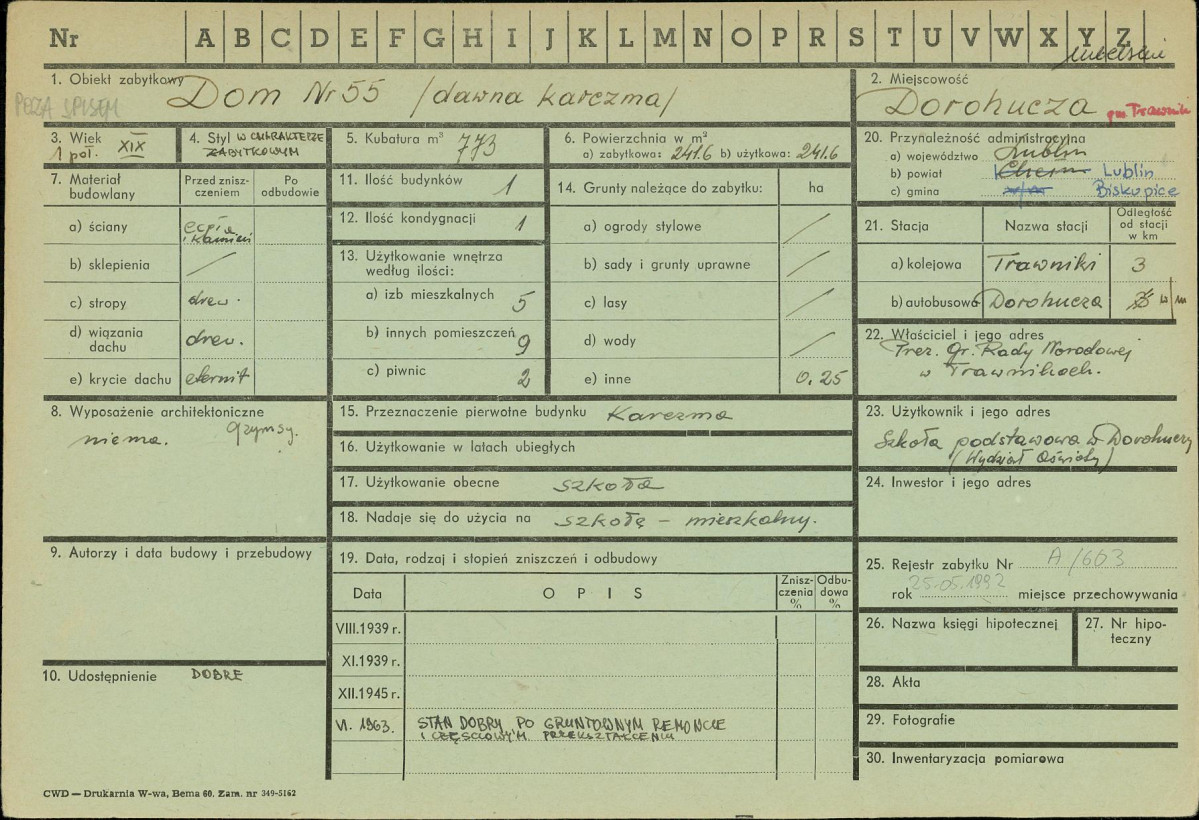 Nr A B C D E F G H I J K L M N O P R S T U V W X Y Z
lubelski
1. Obiekt zabytkowy Dom Nr 55 /dawna karczma/
POZA SPISEM
2. Miejscowość
Dorohucza gm Trawniki
3. Wiek XIX
1 poł.
4. Styl W CHARAKTERZE
ZABYTKOWYM
5. Kubatura m³ 773
6. Powierzchnia w m²
a) zabytkowa: 241.6 b) użytkowa: 241.6
7. Materiał budowlany
Przed zniszczeniem
Po odbudowie
a) ściany cegła
i kamień
b) sklepienia /
c) stropy drew.
d) wiązania dachu drew.
e) krycie dachu eternit
8. Wyposażenie architektoniczne
niema. gzymsy.
9. Autorzy i data budowy i przebudowy
10. Udostępnienie DOBRE
11. Ilość budynków 1
12. Ilość kondygnacji 1
13. Użytkowanie wnętrza
według ilości:
a) izb mieszkalnych 5
b) innych pomieszczeń 9
c) piwnic 2
14. Grunty należące do zabytku: ha
a) ogrody stylowe /
b) sady i grunty uprawne /
c) lasy /
d) wody /
e) inne 0.25
15. Przeznaczenie pierwotne budynku Karczma
16. Użytkowanie w latach ubiegłych
17. Użytkowanie obecne szkoła
18. Nadaje się do użycia na szkołę – mieszkalny.
19. Data, rodzaj i stopień zniszczeń i odbudowy
Data OPIS Zniszczenia % Odbudowa %
VIII.1939 r.
XI.1939 r.
XII.1945 r.
VI. 1963. STAN DOBRY, PO GRUNTOWNYM REMONCIE
I CZĘŚCIOWYM PRZEKSZTAŁCENIU
20. Przynależność administracyjna
a) województwo Lublin
b) powiat Chełm Lublin
c) gmina Biskupice
21. Stacja Nazwa stacji Odległość od stacji w km
a) kolejowa Trawniki 3
b) autobusowa Dorohucza w m
22. Właściciel i jego adres
Prez. Gr. Rady Narodowej
w Trawnikach.
23. Użytkownik i jego adres
Szkoła podstawowa w Dorohuczy
(Wydział Oświaty)
24. Inwestor i jego adres
25. Rejestr zabytku Nr A/603
rok 25.05.1992 miejsce przechowywania
26. Nazwa księgi hipotecznej
27. Nr hipoteczny
28. Akta
29. Fotografie
30. Inwentaryzacja pomiarowa
CWD — Drukarnia W-wa, Bema 60. Zam. nr 349-5162